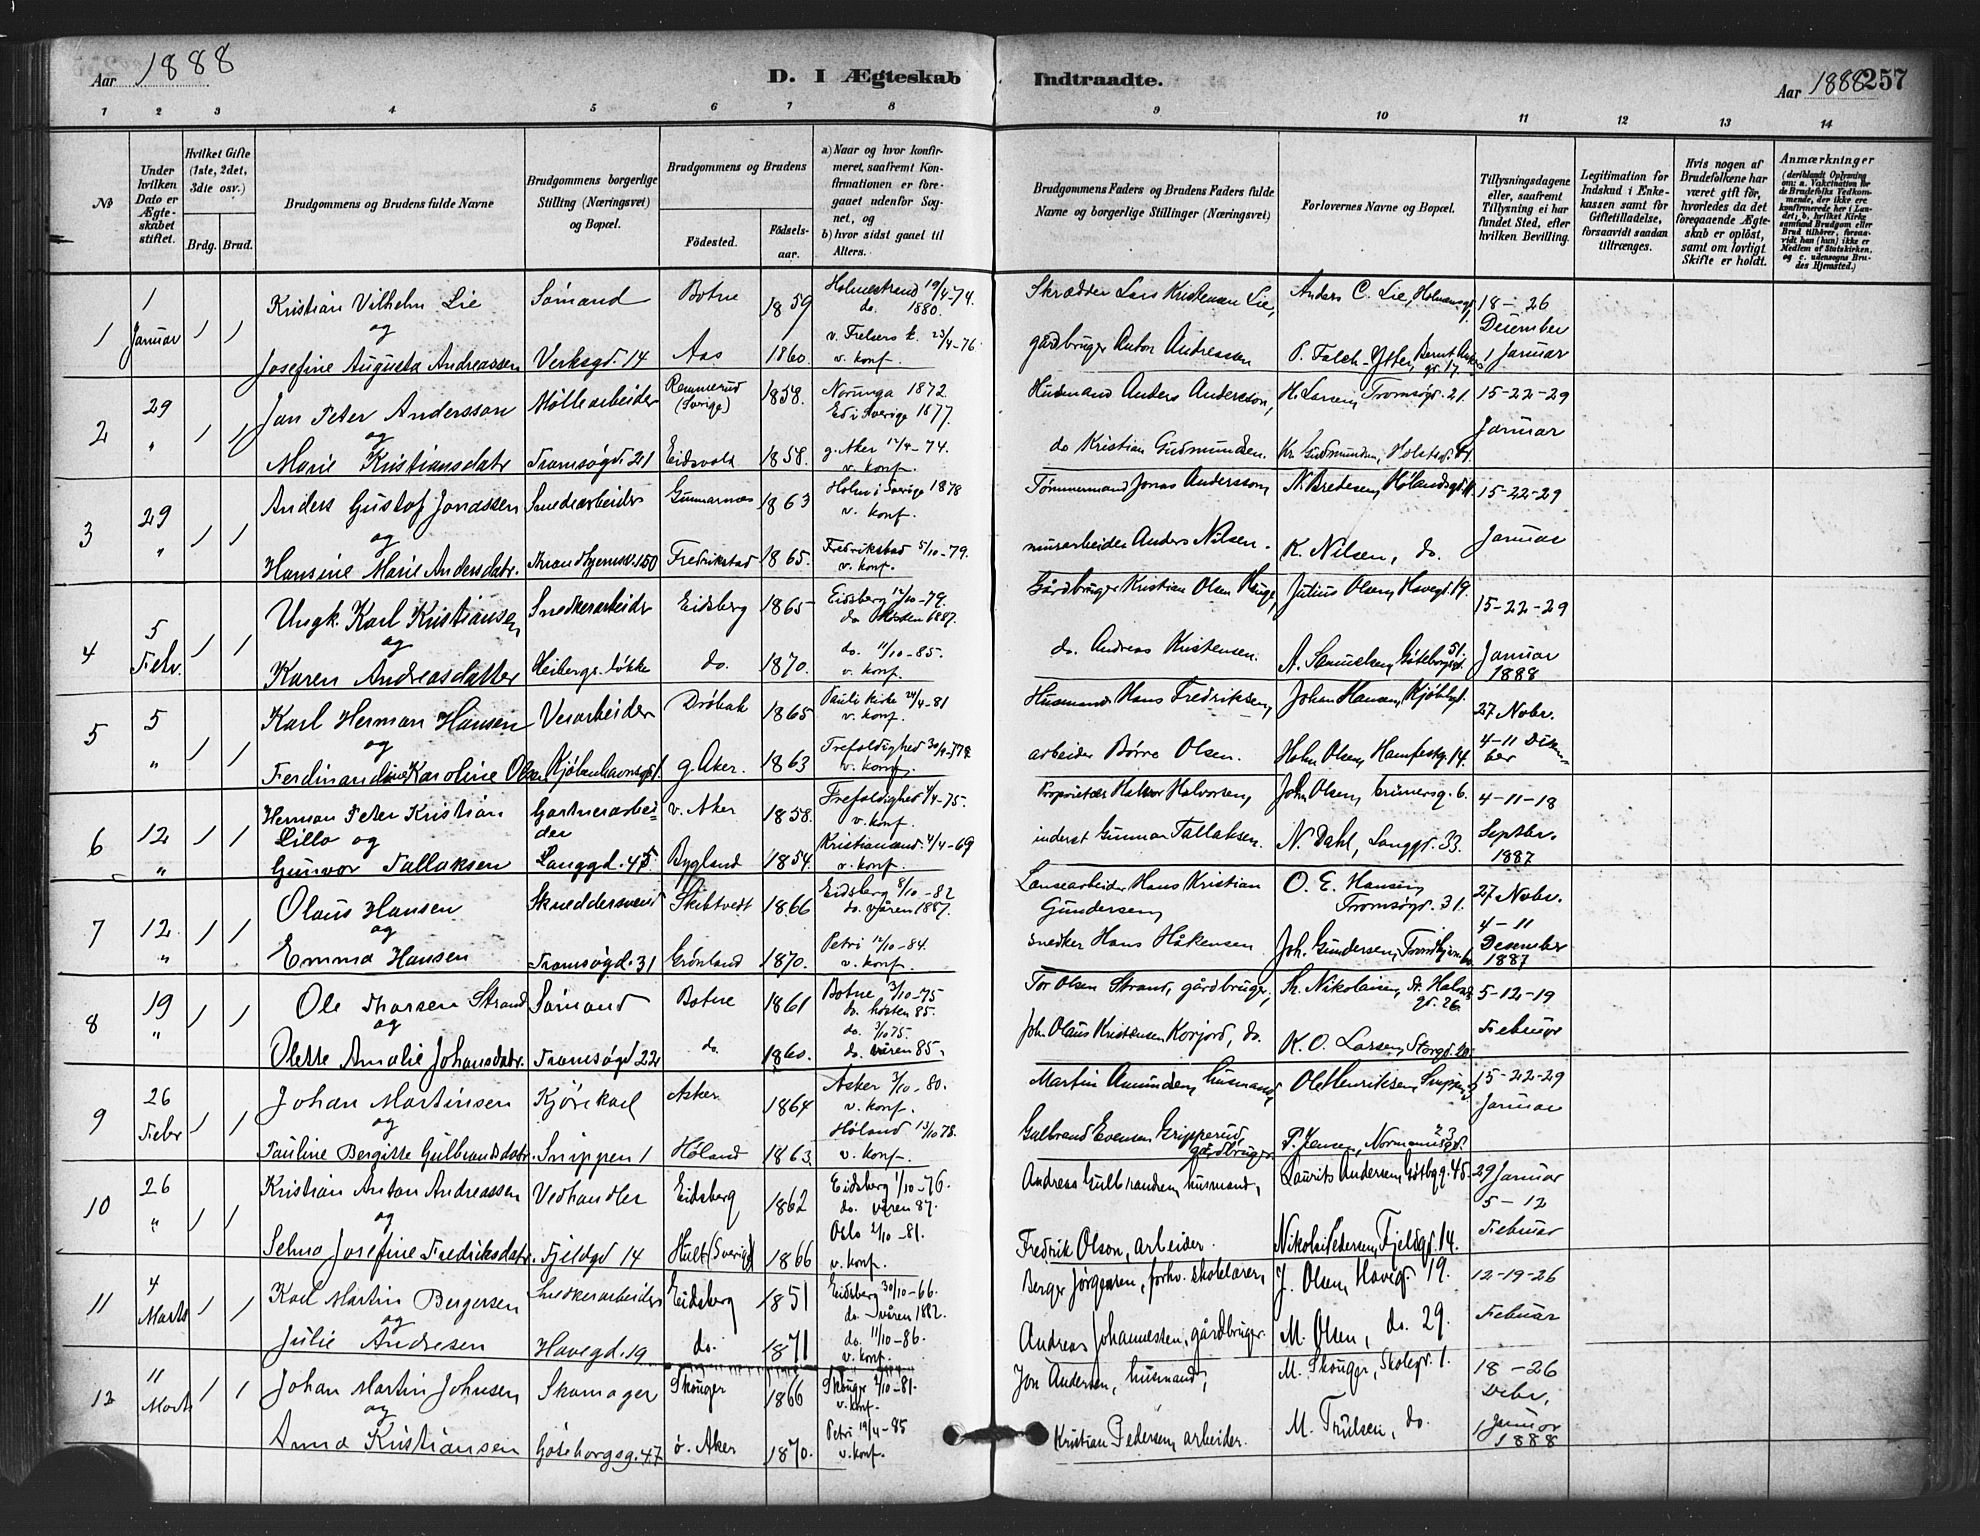 Aar 1888
D. I Ægteskab
Indtraadte.
Aar 1888 257
1 2 3 4 5 6 7 8 9 10 11 12 13 14
No
Under hvilken Dato er Ægteskabet stiftet.
Hvilket Gifte (1ste, 2det, 3die osv.)
Brdg. Brud.
Brudgommens og Brudens fulde Navne
Brudgommens borgerlige Stilling (Næringsvei) og Bopæl.
Brudgommens og Brudens
Fødested.
Fødselsaar.
a) Naar og hvor konfirmeret, saafremt Konfirmationen er foregaaet udenfor Sognet, og
b) hvor sidst gaaet til Alters.
Brudgommens Faders og Brudens Faders fulde Navne og borgerlige Stillinger (Næringsvei)
Forlovernes Navne og Bopæl.
Tillysningsdagene eller, saafremt Tillysning ei har fundet Sted, efter hvilken Bevilling.
Legitimation for Indskud i Enkekassen samt for Giftetilladelse, forsaavidt saadan tiltrænges.
Hvis nogen af Brudefolkene har været gift før, hvorledes da det foregaaende Ægteskab er opløst, samt om lovligt Skifte er holdt.
Anmærkninger (deriblandt Oplysning om: a. Vakcination for de Brudefolks Vedkommende, der ikke ere konfirmerede her i Landet; b, hvilket Kirkesamfund Brudgom eller Brud tilhører, forsaavidt han (hun) ikke er Medlem af Statskirken, og c. udensogns Brudes Hjemsted.)
1 1 Januar 1 1
Kristian Vilhelm Lie Sømand Botne 1859 Holmestrand 19/4-74. do. 1880.
og
Josefine Augusta Andreassen Verksgd. 14 Aas 1860. v. Frelsers k. 23/4-76. v. konf.
Skrædder Lars Kristensen Lie, Anders C. Lie, 18-26 Desember
gårdbruger Anton Andreassen P. Falch-Ytter, 1 Januar
2 29 " 1 1
Jan Peter Andersson Møllearbeider Rammerud (Sverige) 1858. Noringa 1872 Ed i Sverige 1877.
og
Marie Kristiansdatr Tromsøgd. 21 Eidsvold 1858. g. Aker 12/4-74. v. konf.
Husmand Anders Andersson, H. Larsen, Tromsøgd. 21. 15-22-29 Januar
do Kristian Gudmundsen. Kr. Gudmundsen,
3 29 " 1 1
Anders Gustof Jonassen Smedearbeider Gunnarnæs 1863 Holm i Sverige 1878 v. konf.
og
Hansine Marie Andersdatr. Trondhjemsv. 150 Fredrikstad 1865. Fredrikstad 5/10-79. v. konf.
Tømmermand Jonas Andersson, N. Bredesen, Hølandsgd. 15-22-29 Januar
murarbeider Anders Nilsen. K. Nilsen, do.
4 5 Febr. 1 1
Ungk. Karl Kristiansen Snedkerarbeider Eidsberg 1865 Eidsberg 12/10-79. do Høsten 1887.
og
Karen Andreasdatter Heibergs løkke do. 1870. do. 11/10-85. v. konf.
Gårdbruger Kristian Olsen Julius Olsen, Havegd. 19. 15-22-29
do. Andreas Kristensen. A. Samuelsen, Gøteborgsgd. 51. Januar 1888
5 5 " 1 1
Karl Herman Hansen Verarbeider Drøbak 1865 Pauli kirke 24/4-81 v. konf.
og
Ferdinandine Karoline Olsen Kjøbenhavnsgd. g. Aker. 1863 Trefoldighed v. konf.
Husmand Hans Fredriksen, Johan Hansen, Kjøbhgd. 27 Nobr.
arbeider Børre Olsen. Olsen, Hamfestg. 14. 4-11 Desember
6 12 " 1 1
Herman Peter Kristian Gartnerarbeider v. Aker 1858. Trefoldighed 4/4-75. v. konf.
Lillo og
Gunvor Tallaksen Langgd. 45. Bygland 1854. Kristiansand 4/4-69 v. konf.
Proprietær Halvor Halvorsen, John Olsen, Grünersg. 6. 4-11-18 Septbr. 1887
inderst Gunnar Tallaksen. N. Dahl, Langgd. 33.
7 12 " 1 1
Olaus Hansen Skræddersvend Skibtvedt 1866 Eidsberg 8/10-82 do. våren 1887.
og
Emma Hansen Tromsøgd. 31 Grønland 1870. Petri 12/10-84. v. konf.
Hans Kristian Gundersen, O. E. Hansen, Tromsøgd. 31. 27 Nobr.
snedker Hans Håkensen Joh. Gundersen, 4-11 Desember 1887
8 19 " 1 1
Ole Thorsen Strand Sømand Botne 1861 Botne 3/10-75 do. høsten 85.
og
Olette Amalie Johansdatr. Tromsøgd 22 do. 1860. do. 3/10 75. do. våren 85.
Tor Olsen Strand, gårdbruger, Th. Nikolaisen, St. Halvardsgd. 26. 5-12-19 Februar
Joh. Olaus Kristensen Korjord, do. K. O. Larsen, Storgd. 20.
9 26 Febr 1 1
Johan Martinsen Kjørekarl Asker 1864 Asker 3/10-80. v. konf.
og
Pauline Bergitte Gulbrandsdatr. Snippen 1 Høland 1863. Høland 13/10 78. v. konf.
Martin Amundsen, husmand, Ole Henriksen, Snippen 15-22-29 Januar
Gulbrand Evensen Gripperud, gårdbruger P. Jensen, Normannsgd. 23
10 26 " 1 1
Kristian Anton Andreassen Vedhandler Eidsberg 1862 Eidsberg 1/10-76. do. våren 87.
og
Selma Josefine Fredriksdatr. Fjeldgd 14 Hult (Sverige) 1866 Oslo 2/10-81. v. konf.
Andreas Gulbrandsen, husmand, Laurits Andersen, Gøtbgg. 45. 29 Januar 5-12 Februar
Fredrik Olson, arbeider. Nikolai Pedersen, Fjeldgd. 14.
11 4 Marts 1 1
Karl Martin Bergersen Snedkerarbeider Eidsberg 1851 Eidsberg 30/10-66. do våren 1882.
og
Julie Andresen Havegd. 19 do. 1871 do. 11/10-86. v. konf.
Berger Jørgensen, forhv. skolelærer, J. Olsen, Havegd. 19. 12-19-26 Februar
Andreas Johannesen, gårdbruger. M. Olsen, do. 29.
12 11 Marts 1 1
Johan Martin Johnsen Skomager Skouger 1866 Skouger 2/10-81. v. konf.
og
Anna Kristiansen Gøteborgsg. 47 ø. Aker 1870. Petri 19/4-85 v. konf.
Jon Andersen, husmand, M. Skouger, Skolegd. 1. 18-26 Debr.
Kristian Pedersen, arbeider. M. Trulsen, do. 1 Januar 1888